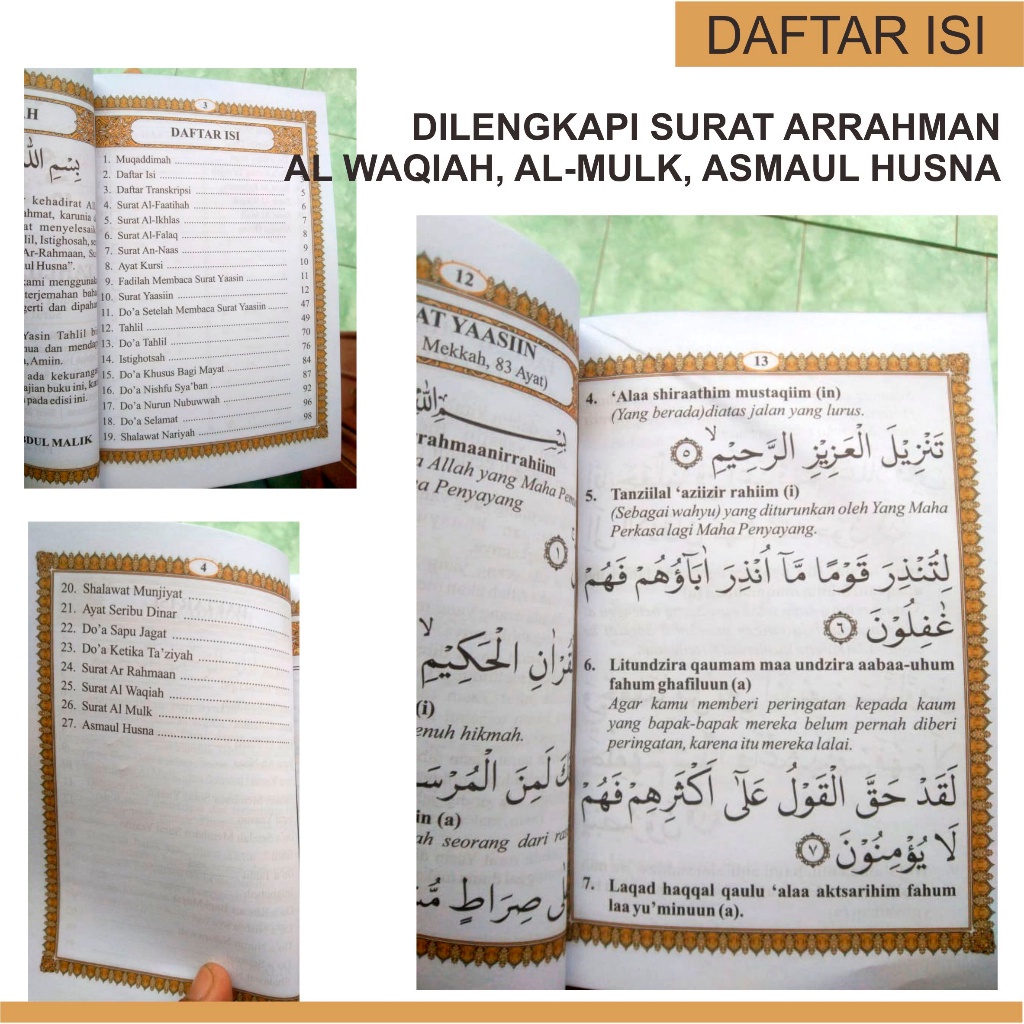 DAFTAR ISI
DILENGKAPI SURAT ARRAHMAN
AL WAQIAH, AL-MULK, ASMAUL HUSNA
AH
بِسْمِ اللّٰهِ
kehadirat
ahmat, karunia
menyelesaik
lil, Istighosah, se
Ar-Rahmaan, Su
ul Husna”.
kami menggunak
terjemahan baha
gerti dan dipaha
Yasin Tahlil bi
mua dan mendap
Amiin.
ada kekuranga
ajian buku ini, kam
pada edisi ini.
BDUL MALIK
3
DAFTAR ISI
1. Muqaddimah
2. Daftar Isi
3. Daftar Transkripsi 5
4. Surat Al-Faatihah 6
5. Surat Al-Ikhlas 7
6. Surat Al-Falaq 8
7. Surat An-Naas 9
8. Ayat Kursi 10
9. Fadilah Membaca Surat Yaasin 11
10. Surat Yaasiin 12
11. Do'a Setelah Membaca Surat Yaasiin 47
12. Tahlil 49
13. Do'a Tahlil 70
14. Istighotsah 76
15. Do'a Khusus Bagi Mayat 84
16. Do'a Nishfu Sya'ban 87
17. Do'a Nurun Nubuwwah 92
18. Do'a Selamat 96
19. Shalawat Nariyah 98
4
20. Shalawat Munjiyat
21. Ayat Seribu Dinar
22. Do'a Sapu Jagat
23. Do'a Ketika Ta'ziyah
24. Surat Ar Rahmaan
25. Surat Al Waqiah
26. Surat Al Mulk
27. Asmaul Husna
12
AT YAASIIN
Mekkah, 83 Ayat)
بِسْمِ اللّٰهِ
rrahmaanirrahiim
a Allah yang Maha Pem
a Penyayang
١
قُرْاٰنِ الْحَكِيْمِ
(i)
enuh hikmah.
كَ لَمِنَ الْمُرْسَ
in (a)
ah seorang dari ras
عَلٰى صِرَاطٍ مُّ
13
4. ‘Alaa shiraathim mustaqiim (in)
(Yang berada)diatas jalan yang lurus.
تَنْزِيْلَ الْعَزِيْزِ الرَّحِيْمِۙ ٥
5. Tanziilal ‘aziizir rahiim (i)
(Sebagai wahyu) yang diturunkan oleh Yang Maha
Perkasa lagi Maha Penyayang.
لِتُنْذِرَ قَوْمًا مَّآ اُنْذِرَ اٰبَاۤؤُهُمْ فَهُمْ
غٰفِلُوْنَ ٦
6. Litundzira qaumam maa undzira aabaa-uhum
fahum ghafiluun (a)
Agar kamu memberi peringatan kepada kaum
yang bapak-bapak mereka belum pernah diberi
peringatan, karena itu mereka lalai.
لَقَدْ حَقَّ الْقَوْلُ عَلٰٓى اَكْثَرِهِمْ فَهُمْ
لَا يُؤْمِنُوْنَ ٧
7. Laqad haqqal qaulu ‘alaa aktsarihim fahum
laa yu’minuun (a).